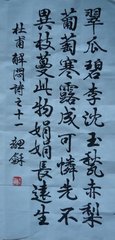 翠瓜碧李沈玉甃赤梨
葡萄寒露成可憐先不
異枝蔓此物娟娟長遠生
杜甫解悶詩之十一